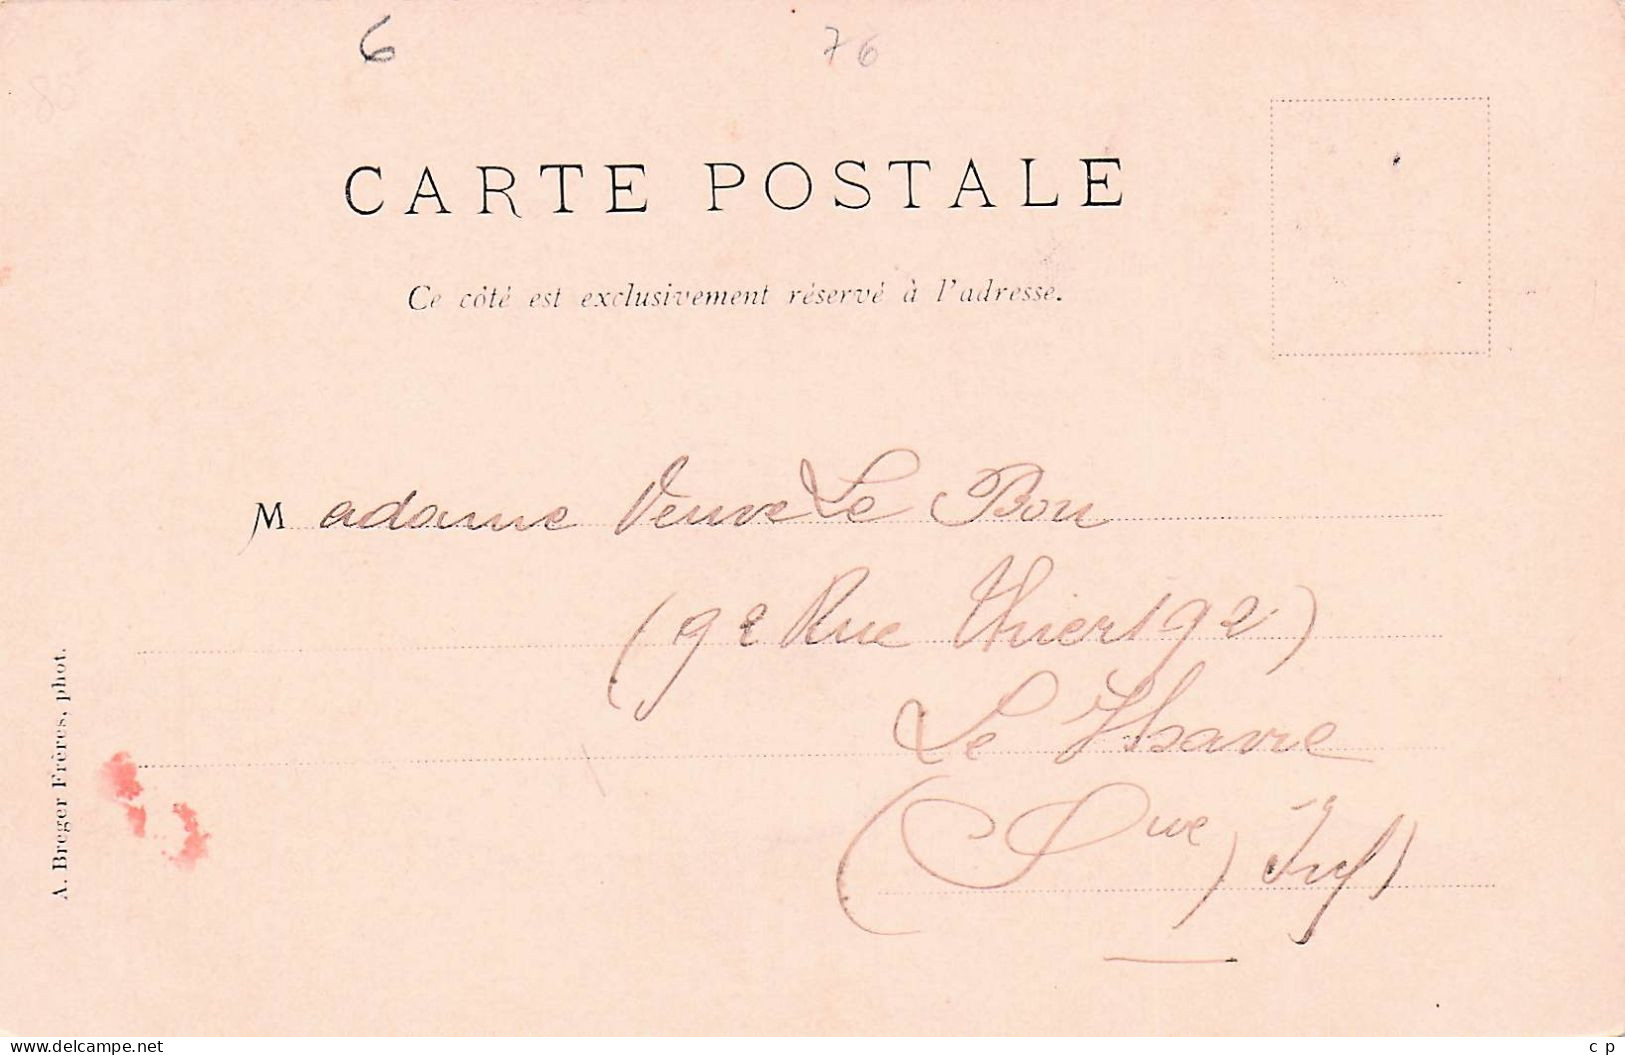 6
76
80
CARTE POSTALE
Ce côté est exclusivement réservé à l'adresse.
Madame Veuve Le Bon
(92 Rue Thiers 92)
Le Havre
(Sne) Inf)
A. Breger Frères, phot.
www.delcampe.net
c p